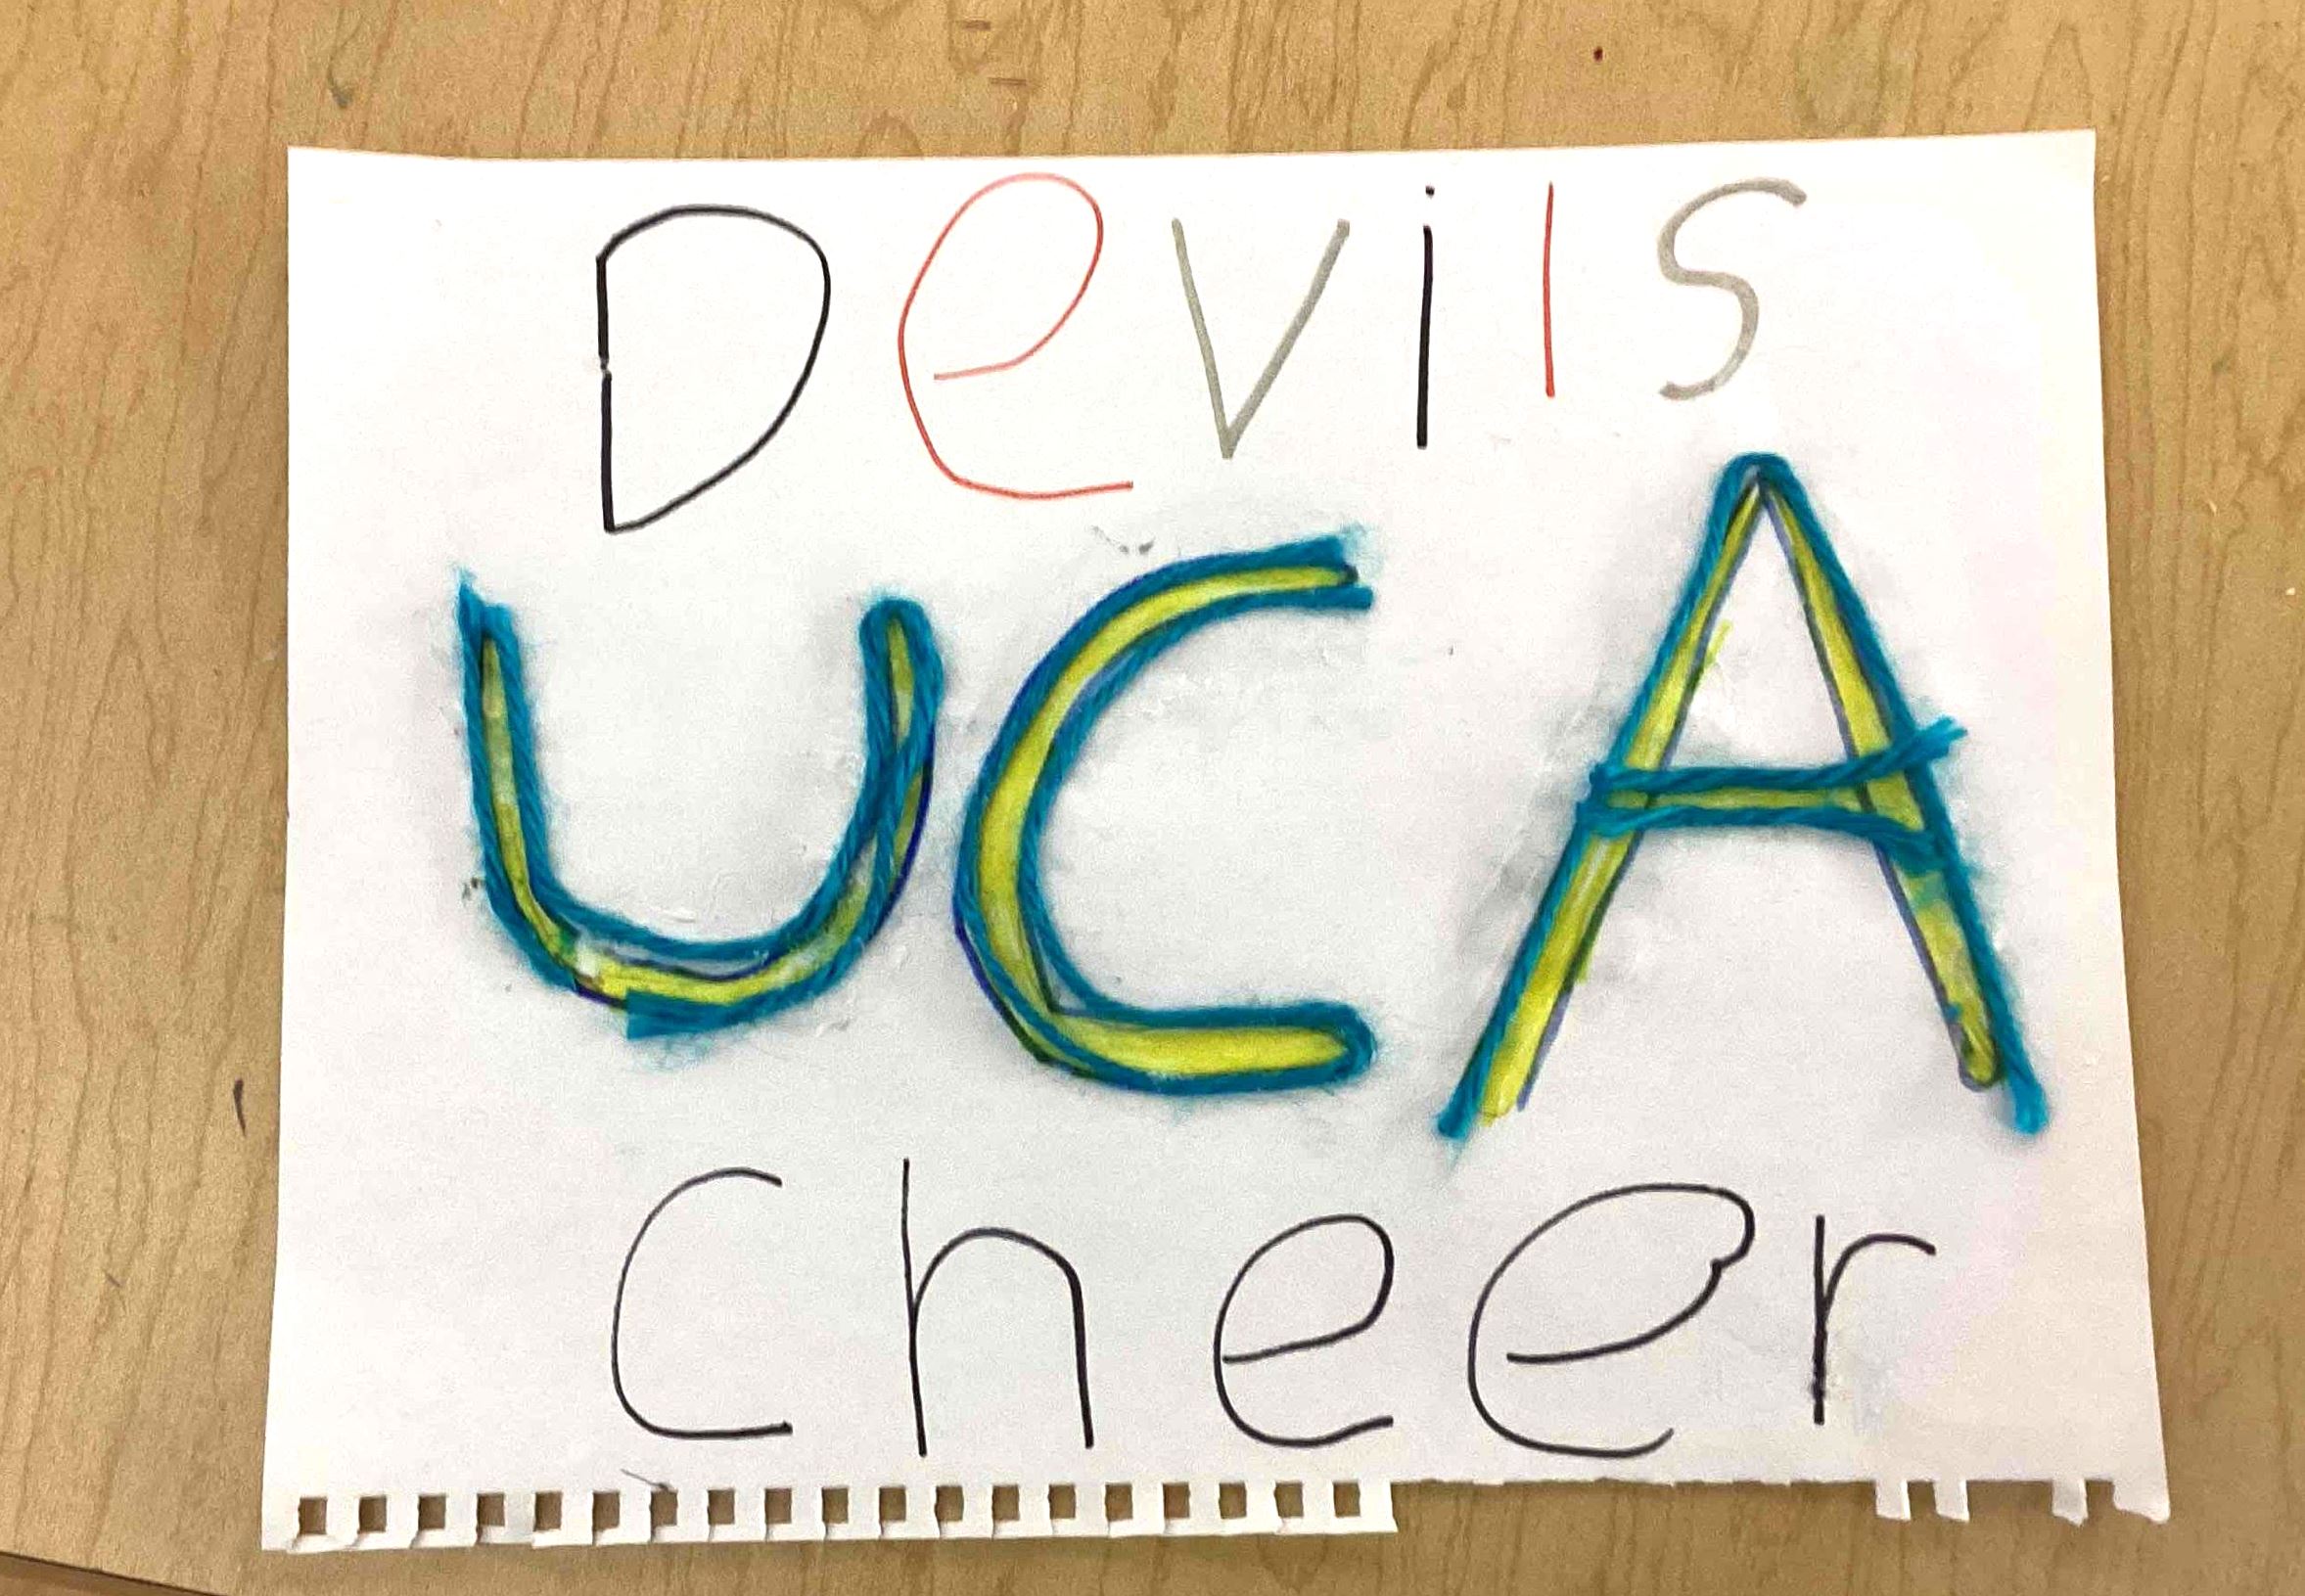 Devils
UCA
Cheer